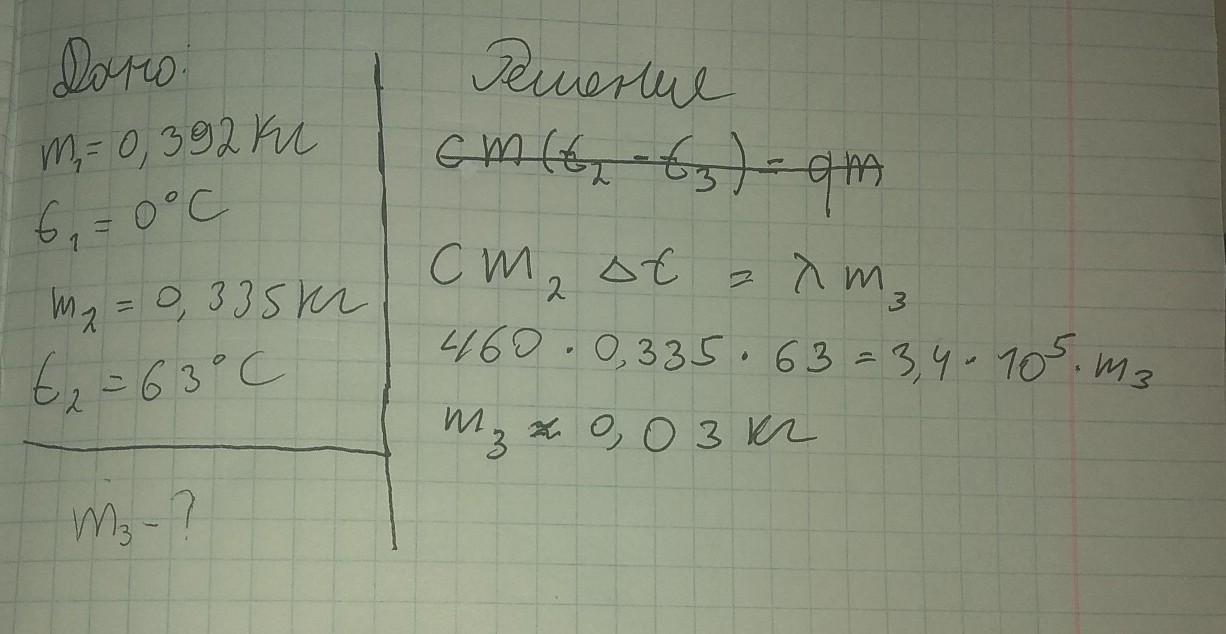 Дано:
m₁ = 0,392 кг
t₁ = 0°C
m₂ = 0,335 кг
t₂ = 63°C
m₃ - ?
Решение
cm(t₂ - t₃) = qm
cm₂ Δt = λm₃
460 · 0,335 · 63 = 3,4 · 10⁵ · m₃
m₃ ≈ 0,03 кг